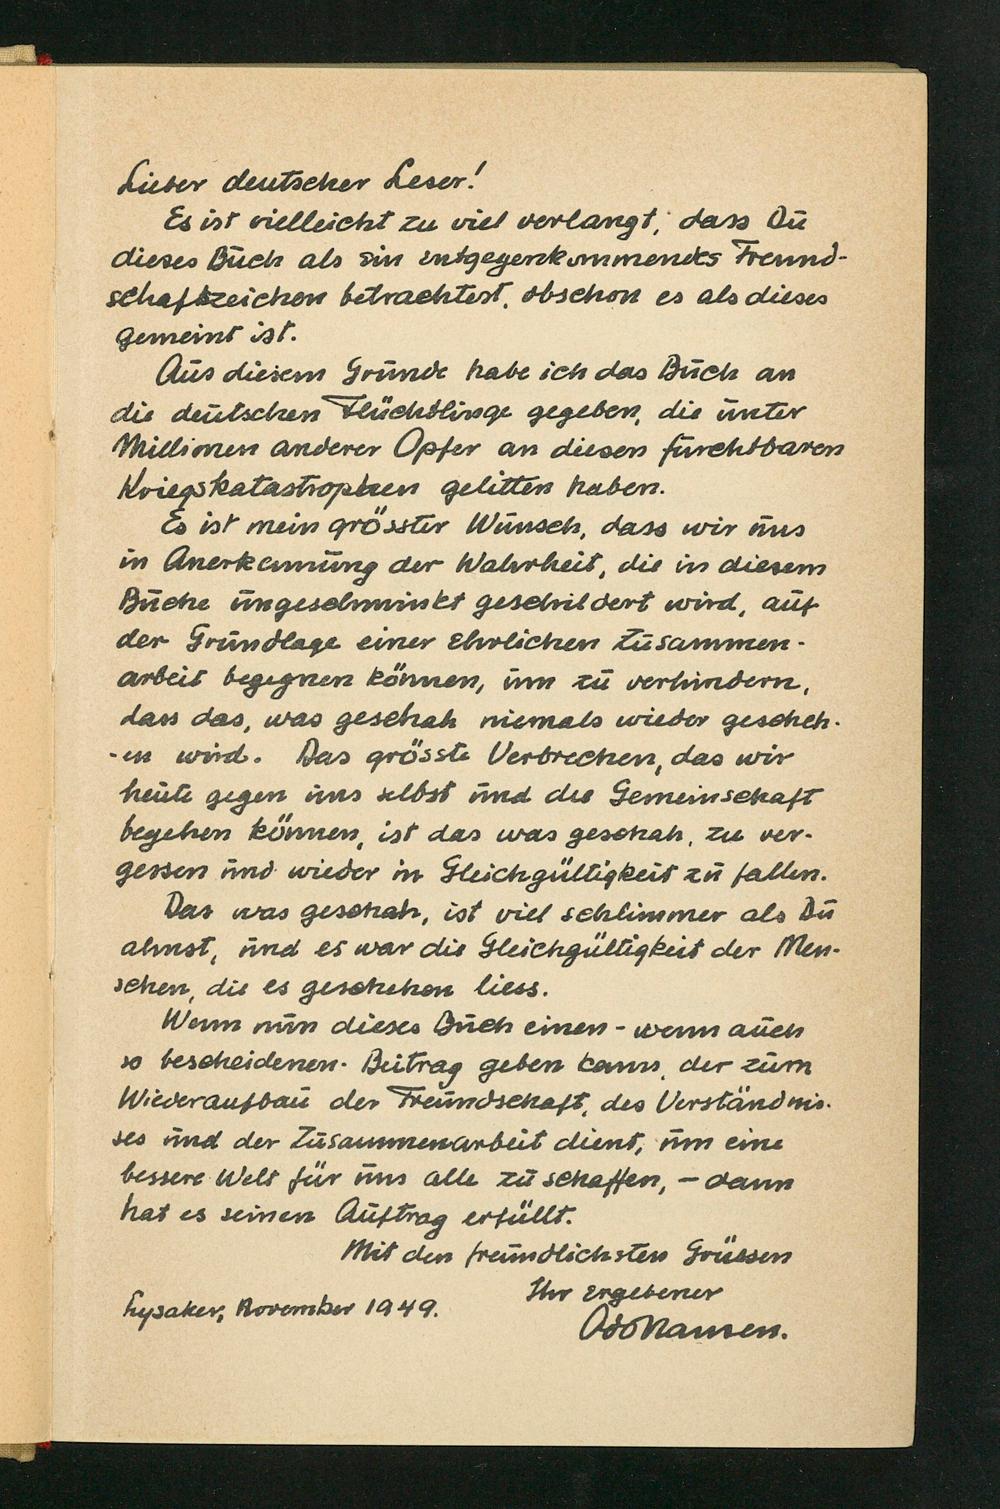 Lieber deutscher Leser!
Es ist vielleicht zu viel verlangt, dass Du
dieses Buch als ein entgegenkommendes Freund-
schaftszeichen betrachtest, obschon es als dieses
gemeint ist.
Aus diesem Grunde habe ich das Buch an
die deutschen Flüchtlinge gegeben, die unter
Millionen anderer Opfer an diesen furchtbaren
Kriegskatastrophen gelitten haben.
Es ist mein grösster Wunsch, dass wir uns
in Anerkennung der Wahrheit, die in diesem
Buche ungeschminkt geschildert wird, auf
der Grundlage einer ehrlichen Zusammen-
arbeit begegnen können, um zu verhindern,
dass das, was geschah niemals wieder gescheh-
-en wird. Das grösste Verbrechen, das wir
heute gegen uns selbst und die Gemeinschaft
begehen können, ist das was geschah, zu ver-
gessen und wieder in Gleichgültigkeit zu fallen.
Das was geschah, ist viel schlimmer als Du
ahnst, und es war die Gleichgültigkeit der Men-
schen, die es geschehen liess.
Wenn nun dieses Buch einen - wenn auch
so bescheidenen - Beitrag geben kann, der zum
Wiederaufbau der Freundschaft, des Verständnis-
ses und der Zusammenarbeit dient, um eine
bessere Welt für uns alle zu schaffen, – dann
hat es seinen Auftrag erfüllt.
Mit den freundlichsten Grüssen
Ihr ergebener
Lysaker, November 1949.
Odd Nansen.